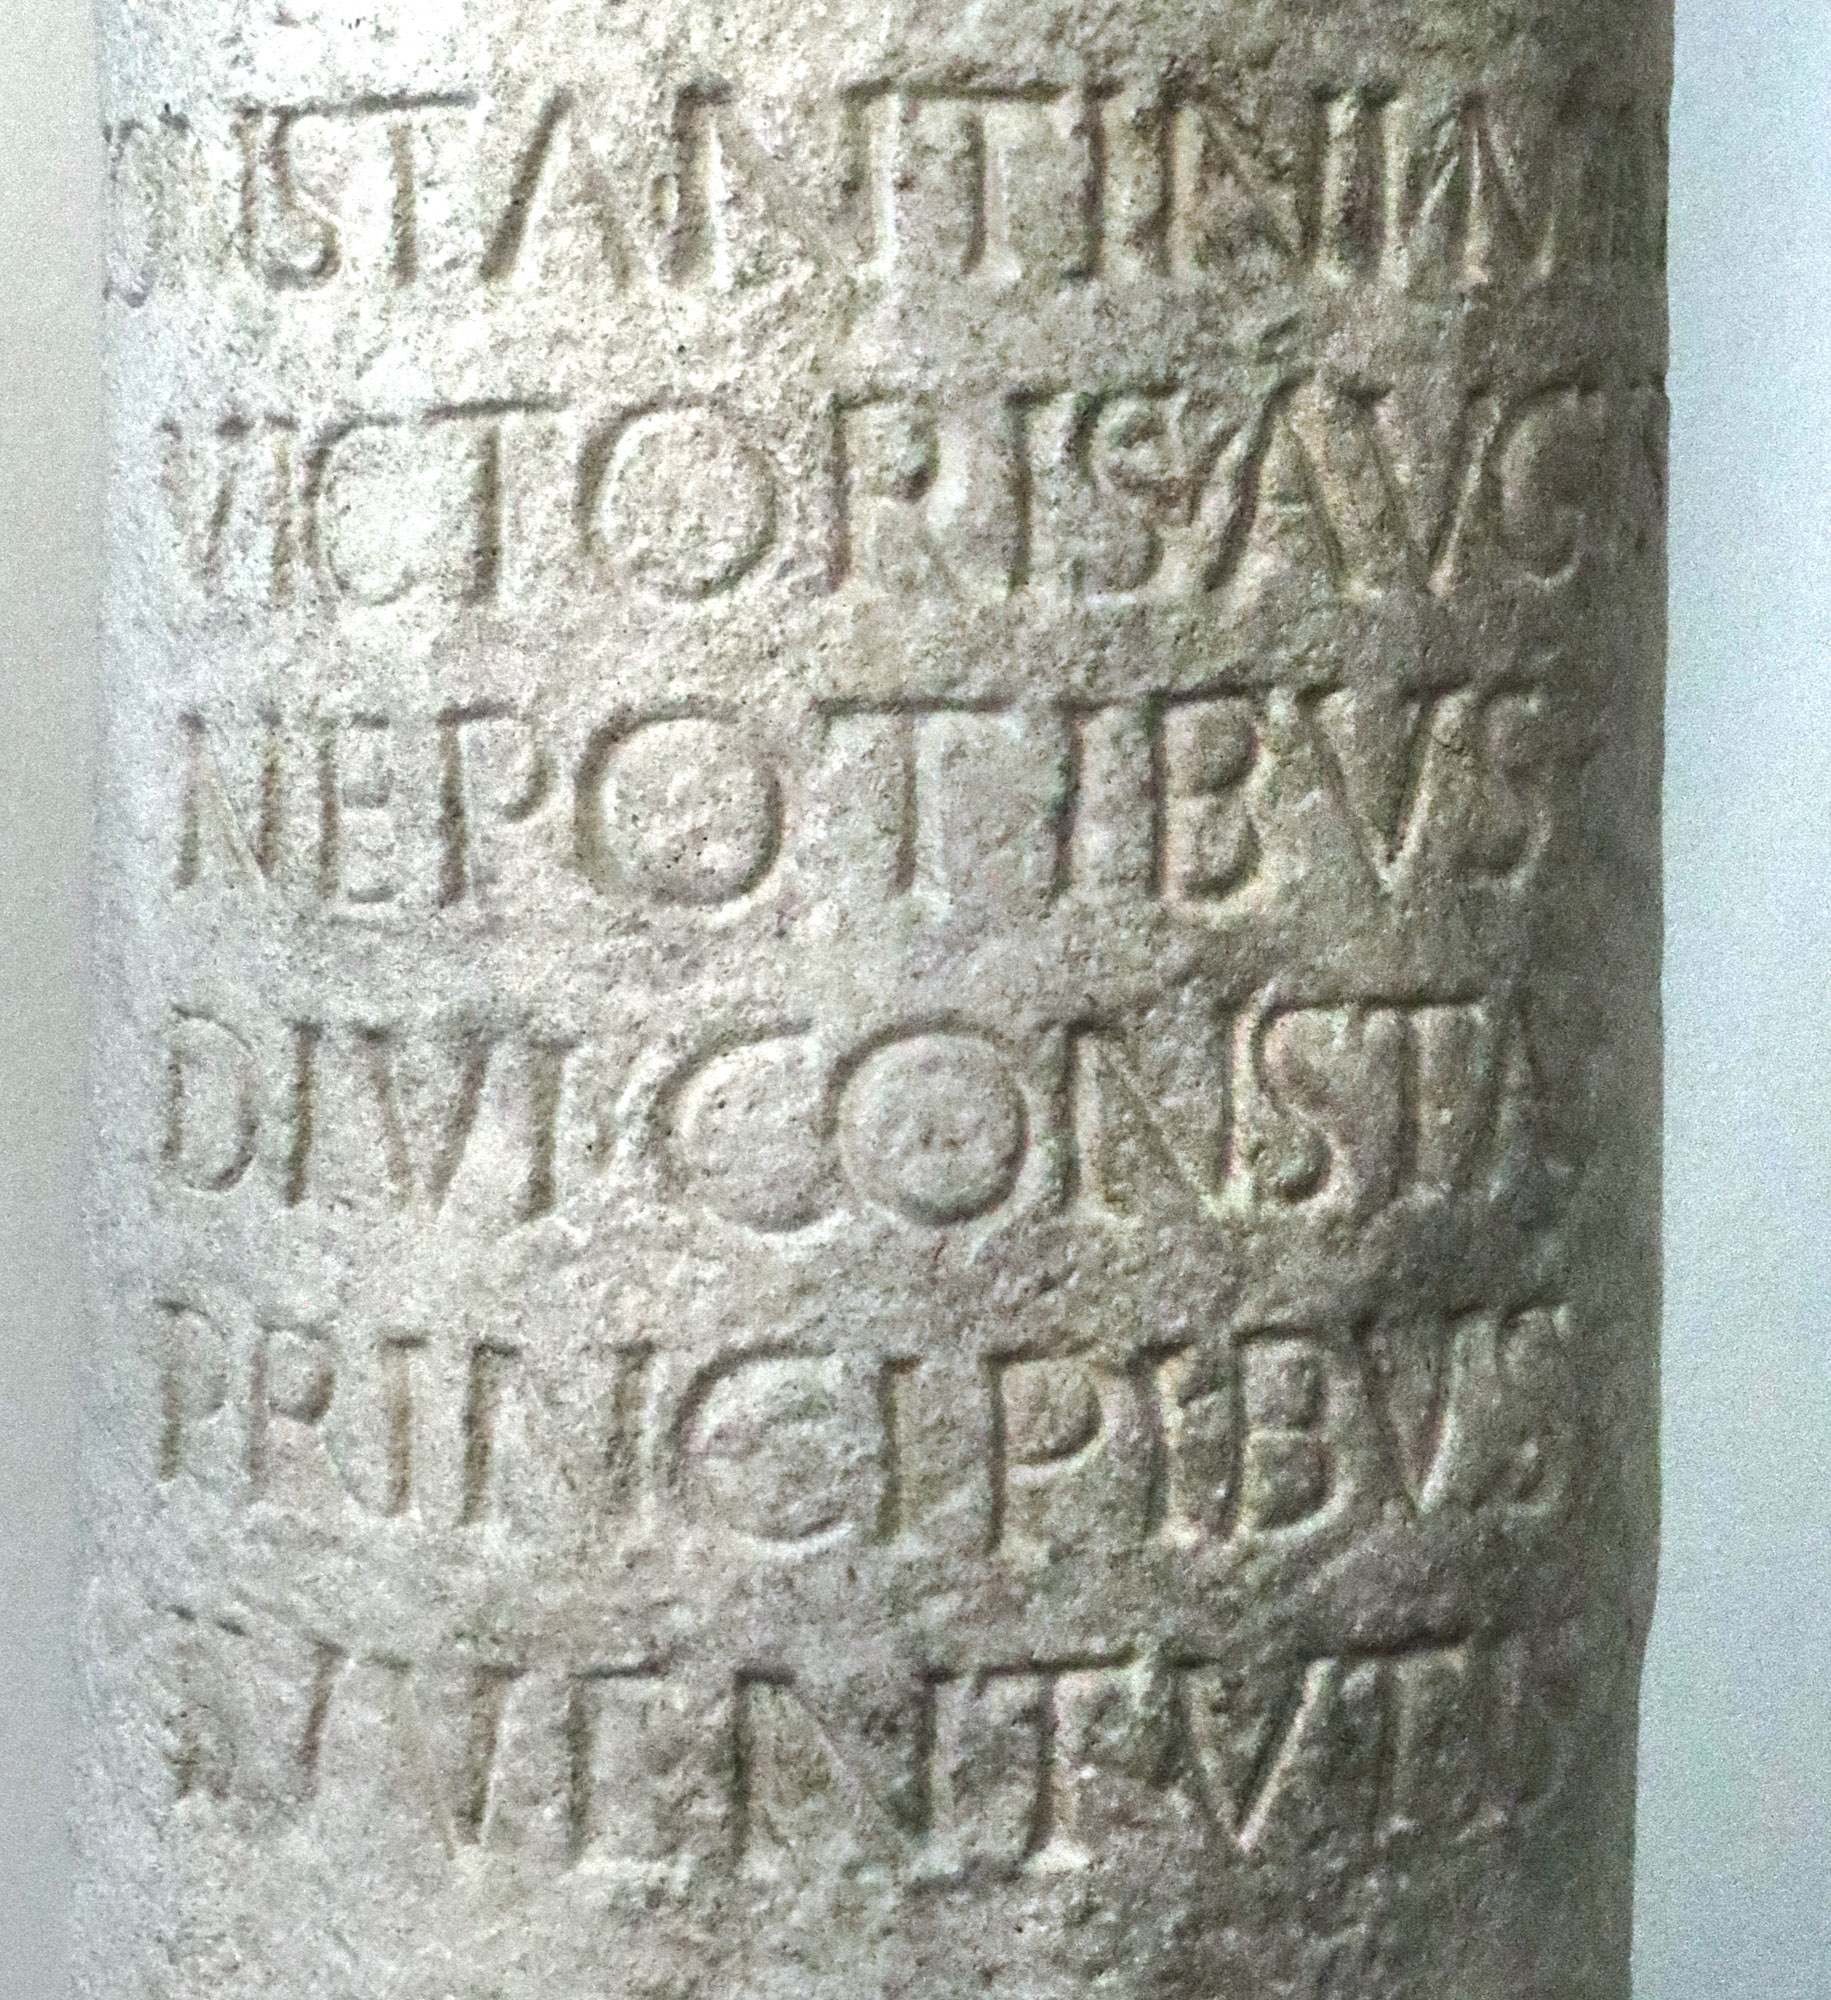 ONSTANTINI M
VICTORIS AVG
NEPOTIBVS
DIVI CONSTA
PRINCIPIBVS
IVVENTVTI